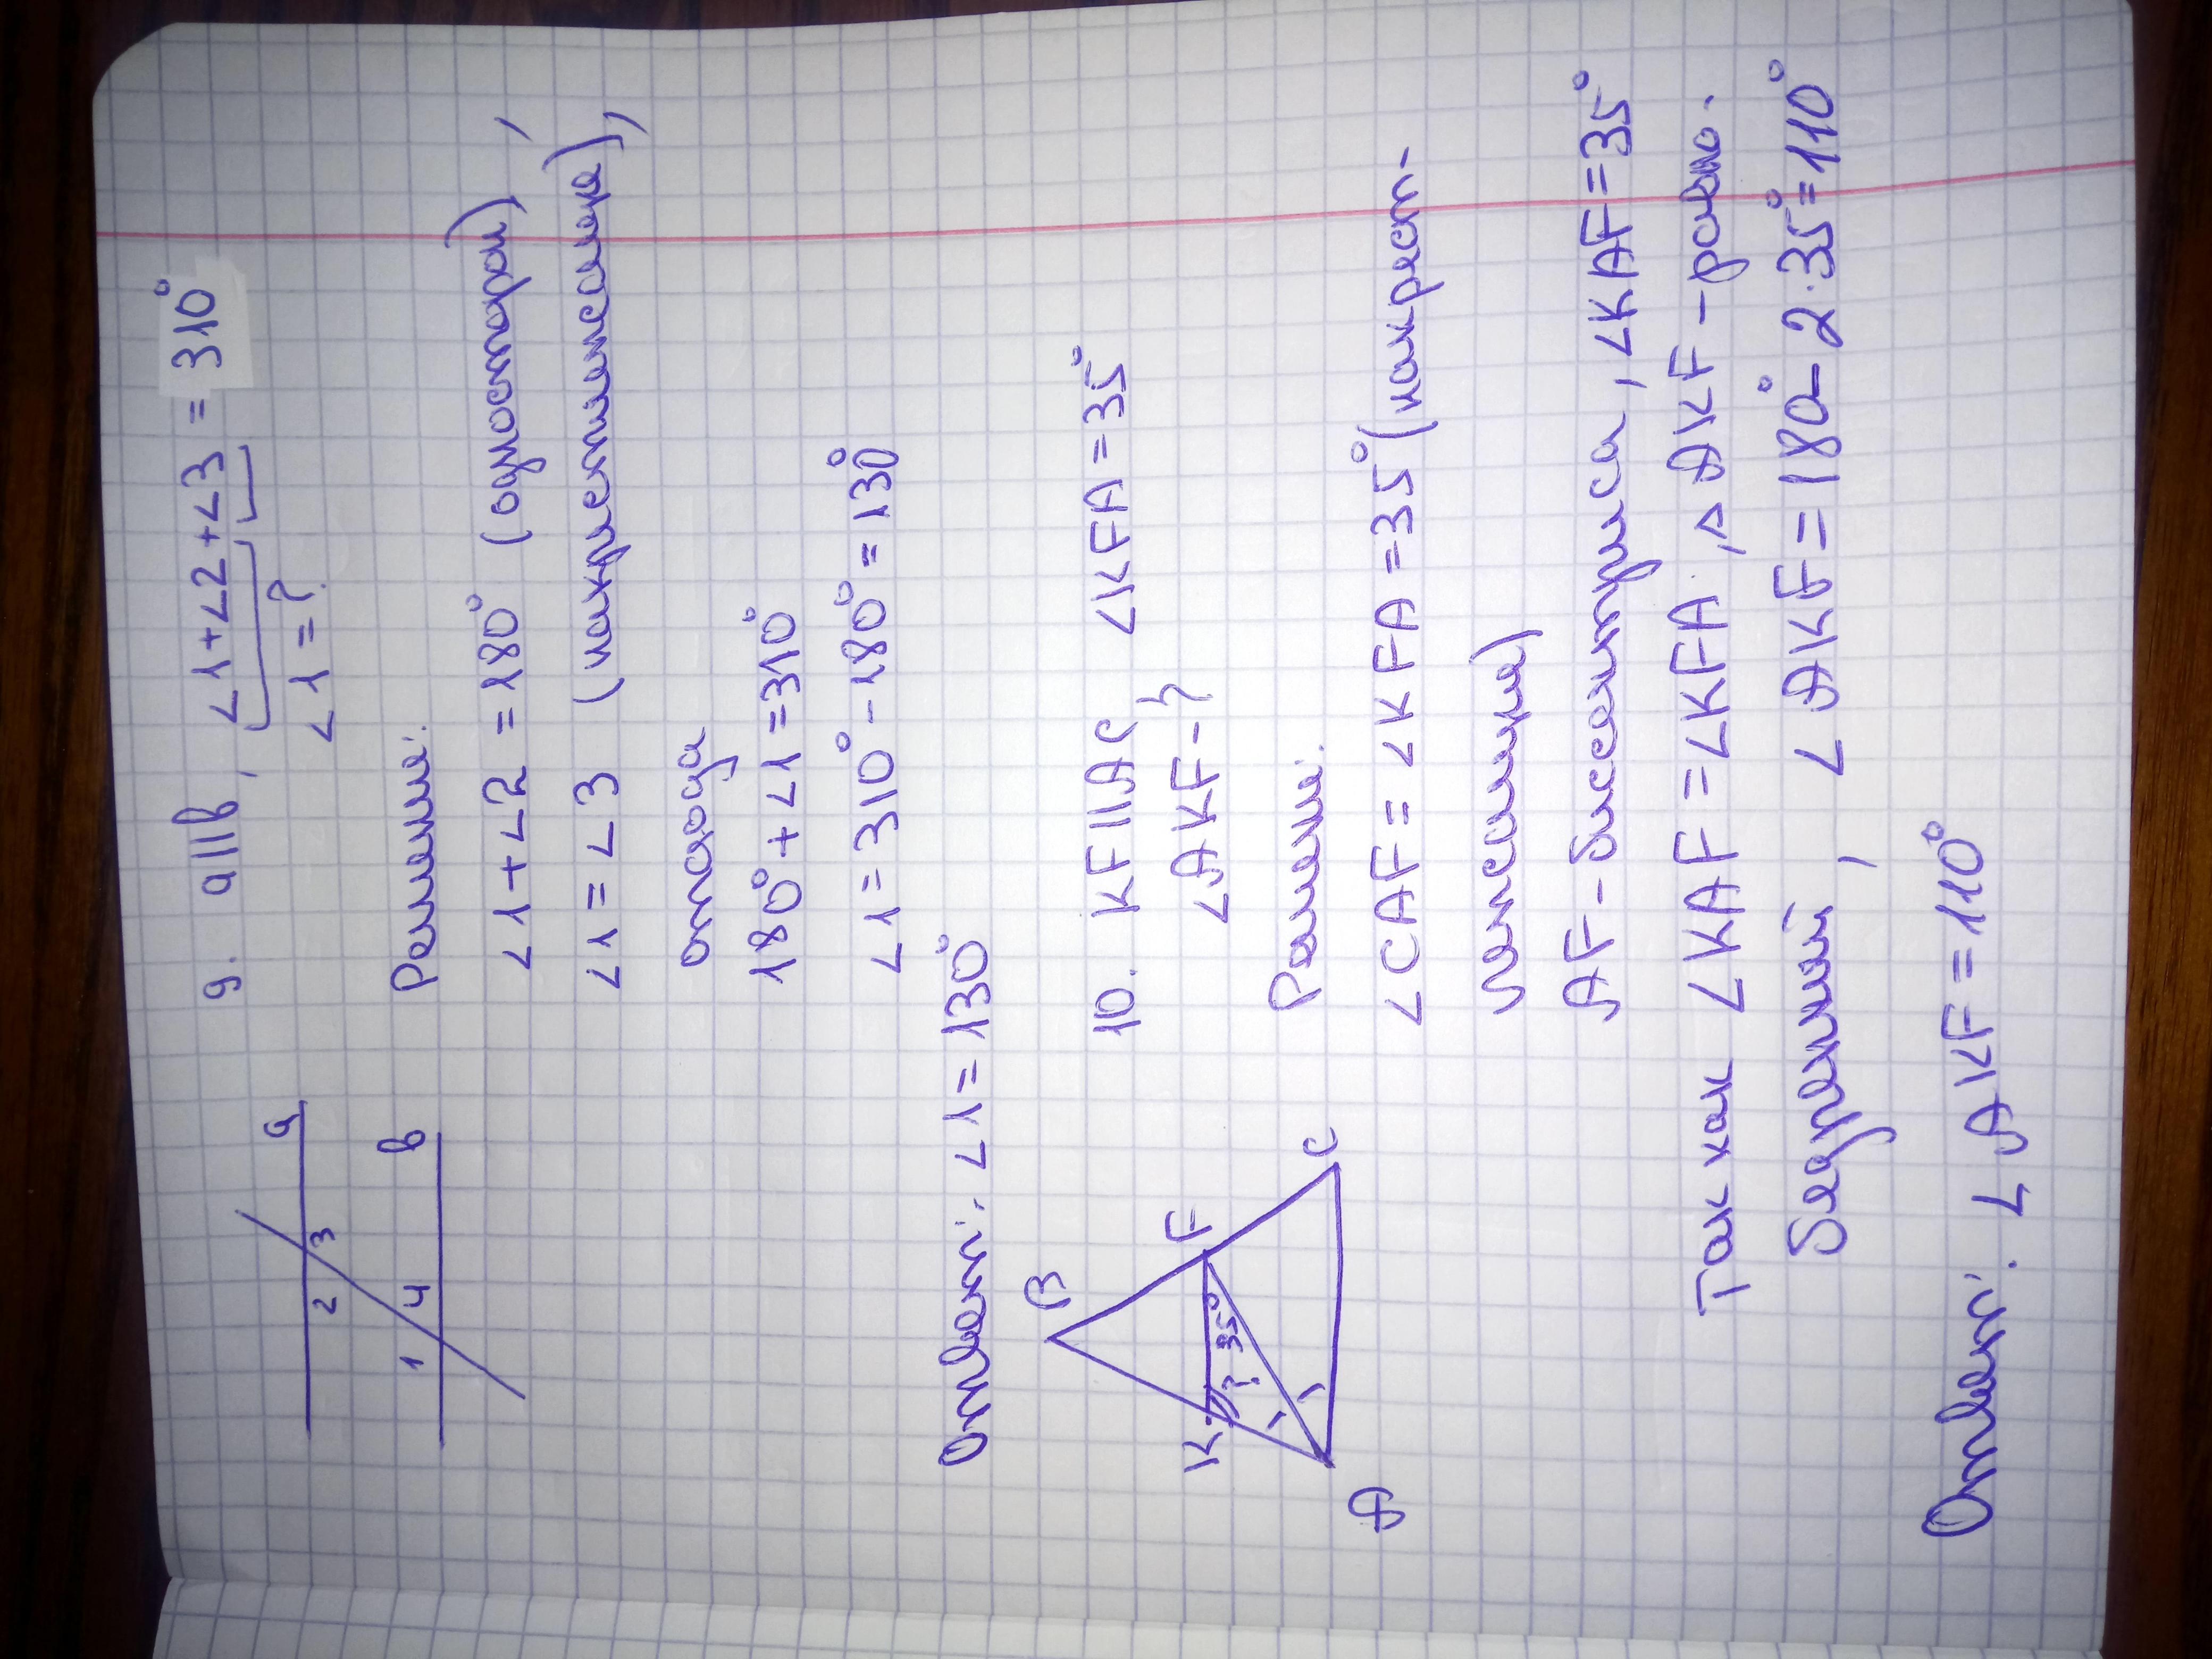 9. a||b, ∠1+∠2+∠3 = 310°
∠1=?
a
2 3
b
1 4
Решение:
∠1+∠2 = 180° (односторон),
∠1=∠3 (накрестлежащие),
отсюда
180°+∠1=310°
∠1=310°-180°=130°
Ответ: ∠1=130°
10. KF||AC ∠KFA=35°
∠AKF-?
B
K F
? 35°
A C
Решение:
∠CAF=∠KFA=35° (накрест-
лежащие)
AF-биссектриса, ∠KAF=35°
Так как ∠KAF=∠KFA, △AKF-равно-
бедренный, ∠AKF=180°-2·35°=110°
Ответ: ∠AKF=110°